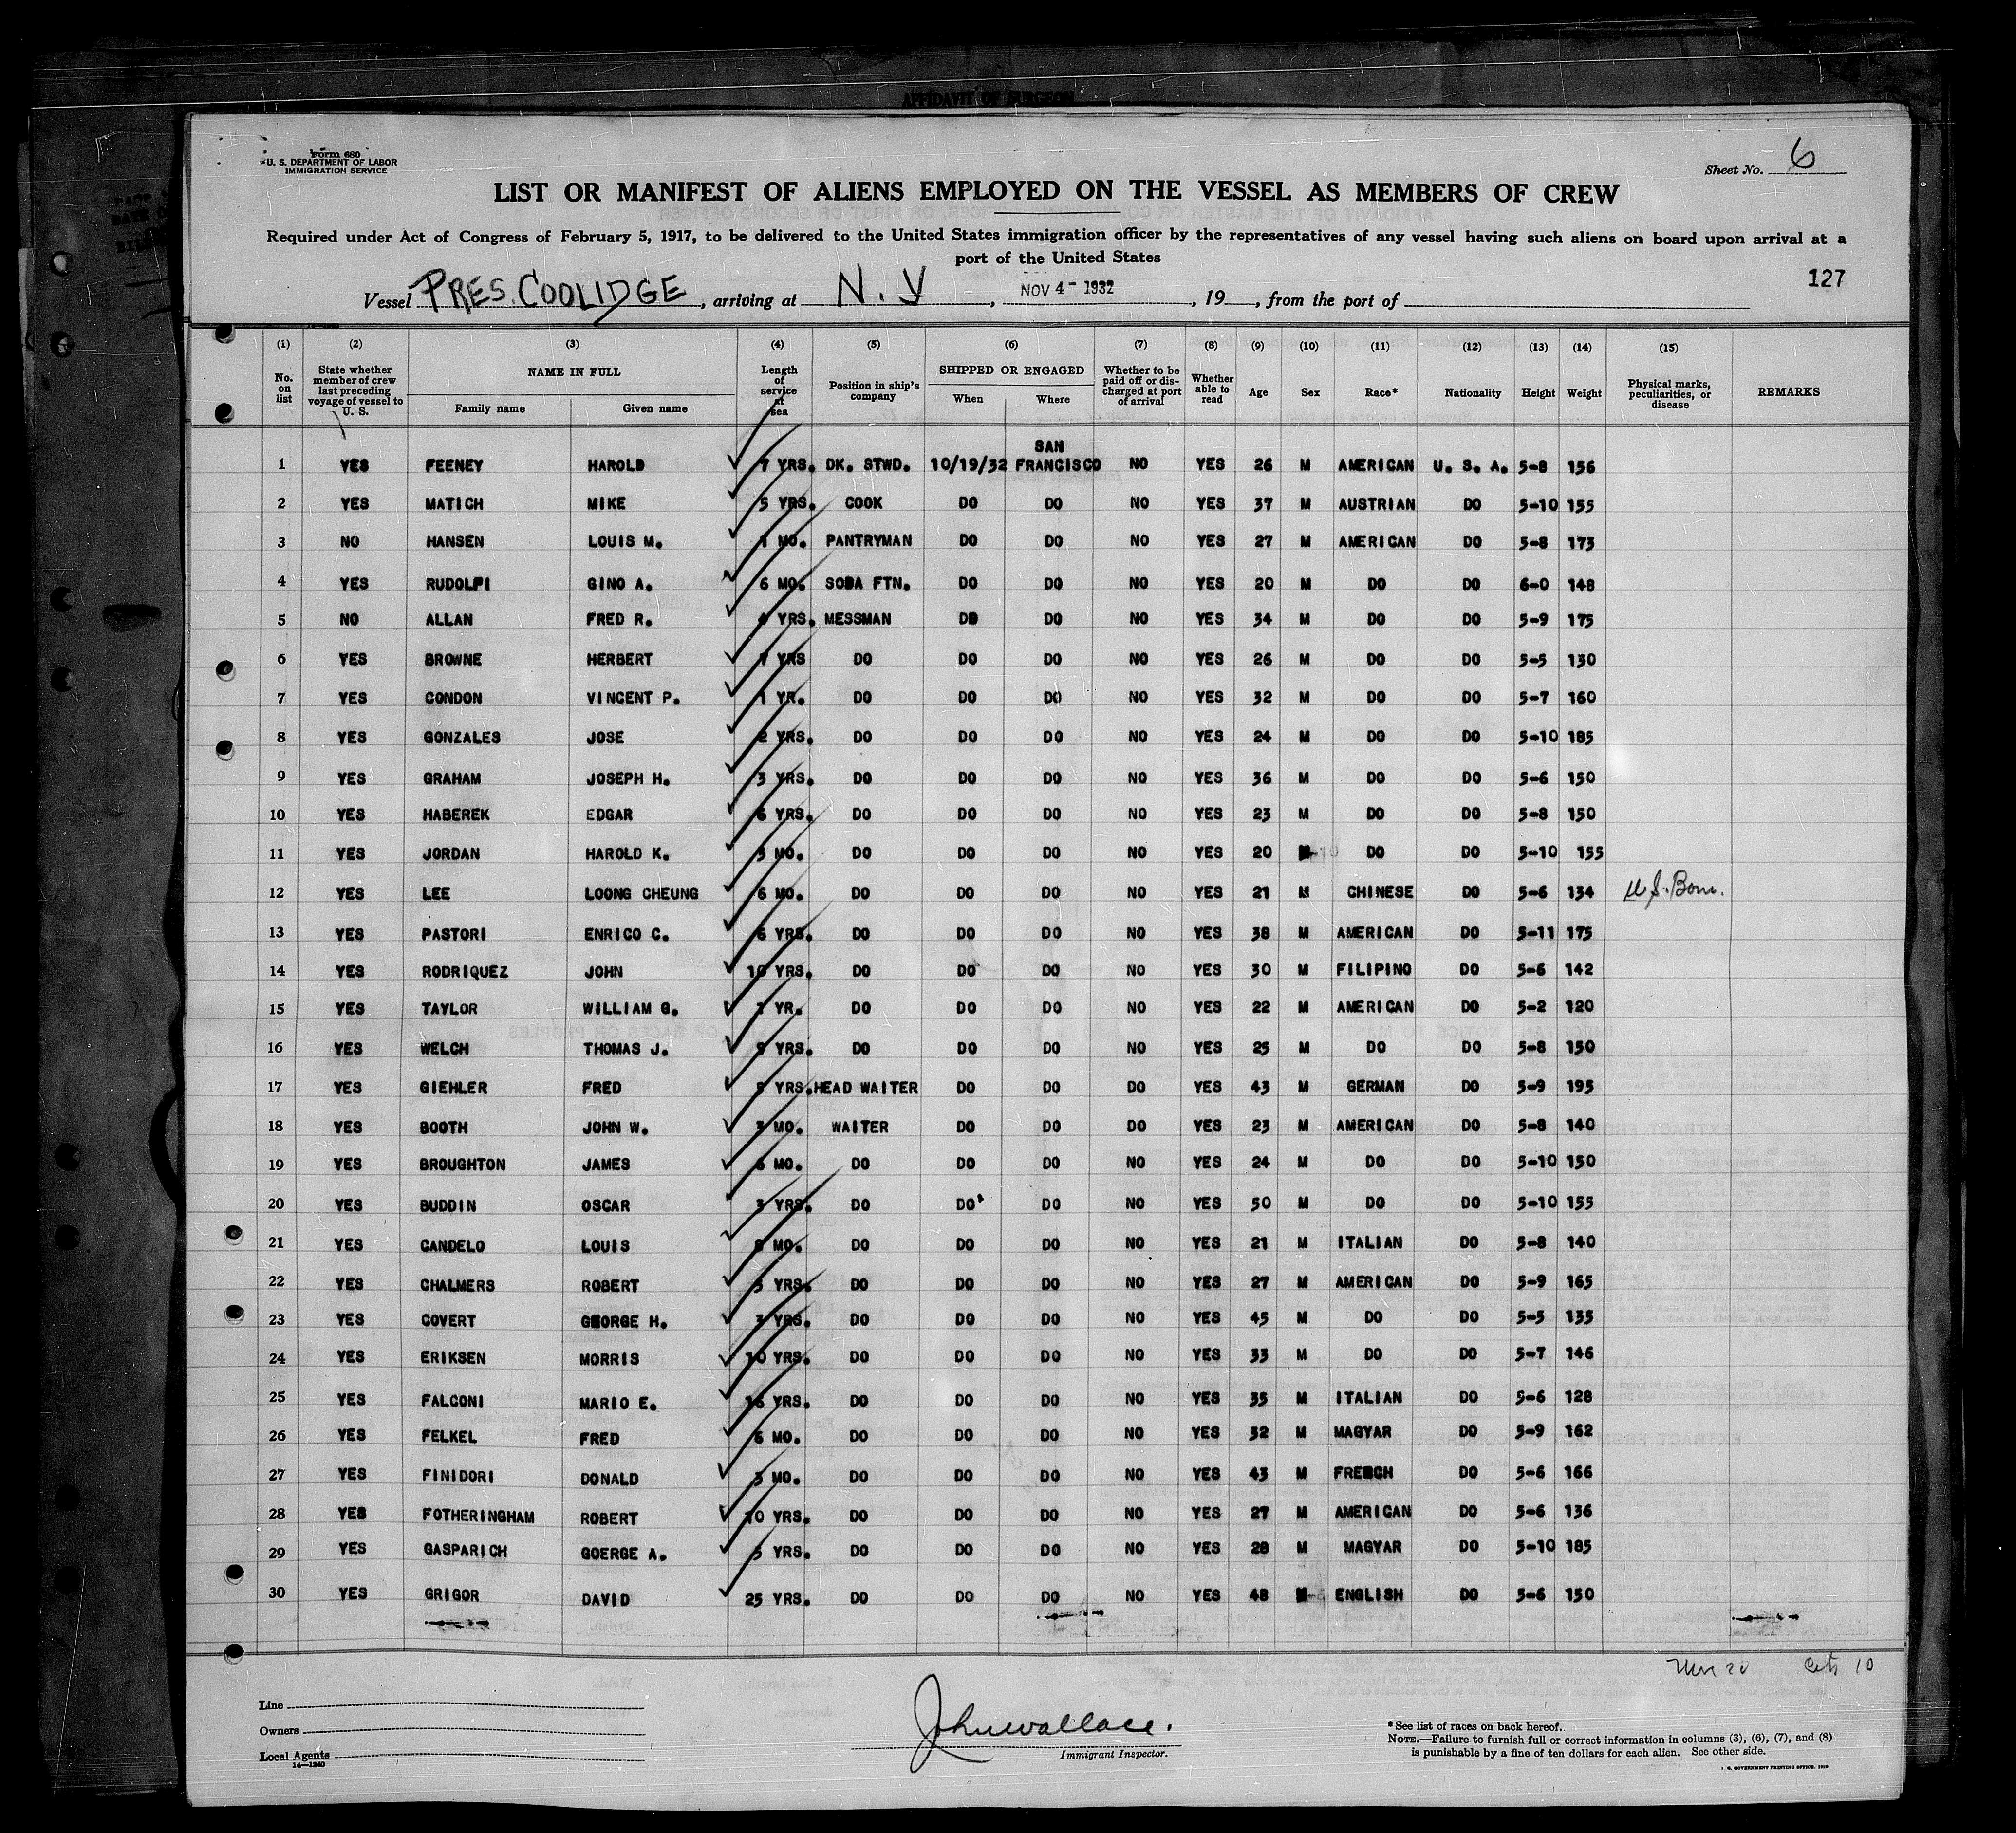 AFFIDAVIT OF SURGEON
Form 680
U. S. DEPARTMENT OF LABOR
IMMIGRATION SERVICE
Sheet No. 6
LIST OR MANIFEST OF ALIENS EMPLOYED ON THE VESSEL AS MEMBERS OF CREW
Required under Act of Congress of February 5, 1917, to be delivered to the United States immigration officer by the representatives of any vessel having such aliens on board upon arrival at a
port of the United States
127
Vessel PRES. COOLIDGE, arriving at N. Y, NOV 4- 1932, 19, from the port of
(1) (2) (3) (4) (5) (6) (7) (8) (9) (10) (11) (12) (13) (14) (15)
No. on list State whether member of crew last preceding voyage of vessel to U. S. NAME IN FULL Family name Given name Length of service at sea Position in ship's company SHIPPED OR ENGAGED When Where Whether to be paid off or discharged at port of arrival Whether able to read Age Sex Race* Nationality Height Weight Physical marks, peculiarities, or disease REMARKS
1 YES FEENEY HAROLD 7 YRS. DK. STWD. 10/19/32 SAN FRANCISCO NO YES 26 M AMERICAN U. S. A. 5-8 156
2 YES MATICH MIKE 5 YRS. COOK DO DO NO YES 37 M AUSTRIAN DO 5-10 155
3 NO HANSEN LOUIS M. 1 MO. PANTRYMAN DO DO NO YES 27 M AMERICAN DO 5-8 173
4 YES RUDOLPI GINO A. 6 MO. SODA FTN. DO DO NO YES 20 M DO DO 6-0 148
5 NO ALLAN FRED R. 4 YRS. MESSMAN DO DO NO YES 34 M DO DO 5-9 175
6 YES BROWNE HERBERT 7 YRS DO DO DO NO YES 26 M DO DO 5-5 130
7 YES CONDON VINCENT P. 1 YR. DO DO DO NO YES 32 M DO DO 5-7 160
8 YES GONZALES JOSE 2 YRS. DO DO DO NO YES 24 M DO DO 5-10 185
9 YES GRAHAM JOSEPH H. 3 YRS. DO DO DO NO YES 36 M DO DO 5-6 150
10 YES HABEREK EDGAR 6 YRS. DO DO DO NO YES 23 M DO DO 5-8 150
11 YES JORDAN HAROLD K. 5 MO. DO DO DO NO YES 20 DO DO 5-10 155
12 YES LEE LOONG CHEUNG 6 MO. DO DO DO NO YES 21 M CHINESE DO 5-6 134 U S. Born.
13 YES PASTORI ENRICO C. 6 YRS. DO DO DO NO YES 38 M AMERICAN DO 5-11 175
14 YES RODRIQUEZ JOHN 10 YRS. DO DO DO NO YES 30 M FILIPINO DO 5-6 142
15 YES TAYLOR WILLIAM G. 1 YR. DO DO DO NO YES 22 M AMERICAN DO 5-2 120
16 YES WELCH THOMAS J. YRS. DO DO DO NO YES 25 M DO DO 5-8 150
17 YES GIEHLER FRED YRS. HEAD WAITER DO DO DO YES 43 M GERMAN DO 5-9 195
18 YES BOOTH JOHN W. 3 MO. WAITER DO DO DO YES 23 M AMERICAN DO 5-8 140
19 YES BROUGHTON JAMES 6 MO. DO DO DO NO YES 24 M DO DO 5-10 150
20 YES BUDDIN OSCAR 3 YRS. DO DO DO NO YES 50 M DO DO 5-10 155
21 YES CANDELO LOUIS MO. DO DO DO NO YES 21 M ITALIAN DO 5-8 140
22 YES CHALMERS ROBERT 5 YRS. DO DO DO NO YES 27 M AMERICAN DO 5-9 165
23 YES COVERT GEORGE H. 3 YRS. DO DO DO NO YES 45 M DO DO 5-5 135
24 YES ERIKSEN MORRIS 10 YRS. DO DO DO NO YES 33 M DO DO 5-7 146
25 YES FALCONI MARIO E. 16 YRS. DO DO DO NO YES 35 M ITALIAN DO 5-6 128
26 YES FELKEL FRED 6 MO. DO DO DO NO YES 32 M MAGYAR DO 5-9 162
27 YES FINIDORI DONALD 3 MO. DO DO DO NO YES 43 M FRENCH DO 5-6 166
28 YES FOTHERINGHAM ROBERT 10 YRS. DO DO DO NO YES 27 M AMERICAN DO 5-6 136
29 YES GASPARICH GOERGE A. 5 YRS. DO DO DO NO YES 28 M MAGYAR DO 5-10 185
30 YES GRIGOR DAVID 25 YRS. DO DO DO NO YES 48 M ENGLISH DO 5-6 150
20 10
Line
Owners
Local Agents
14—1240
John Wallace.
Immigrant Inspector.
*See list of races on back hereof.
NOTE.—Failure to furnish full or correct information in columns (3), (6), (7), and (8)
is punishable by a fine of ten dollars for each alien. See other side.
GOVERNMENT PRINTING OFFICE